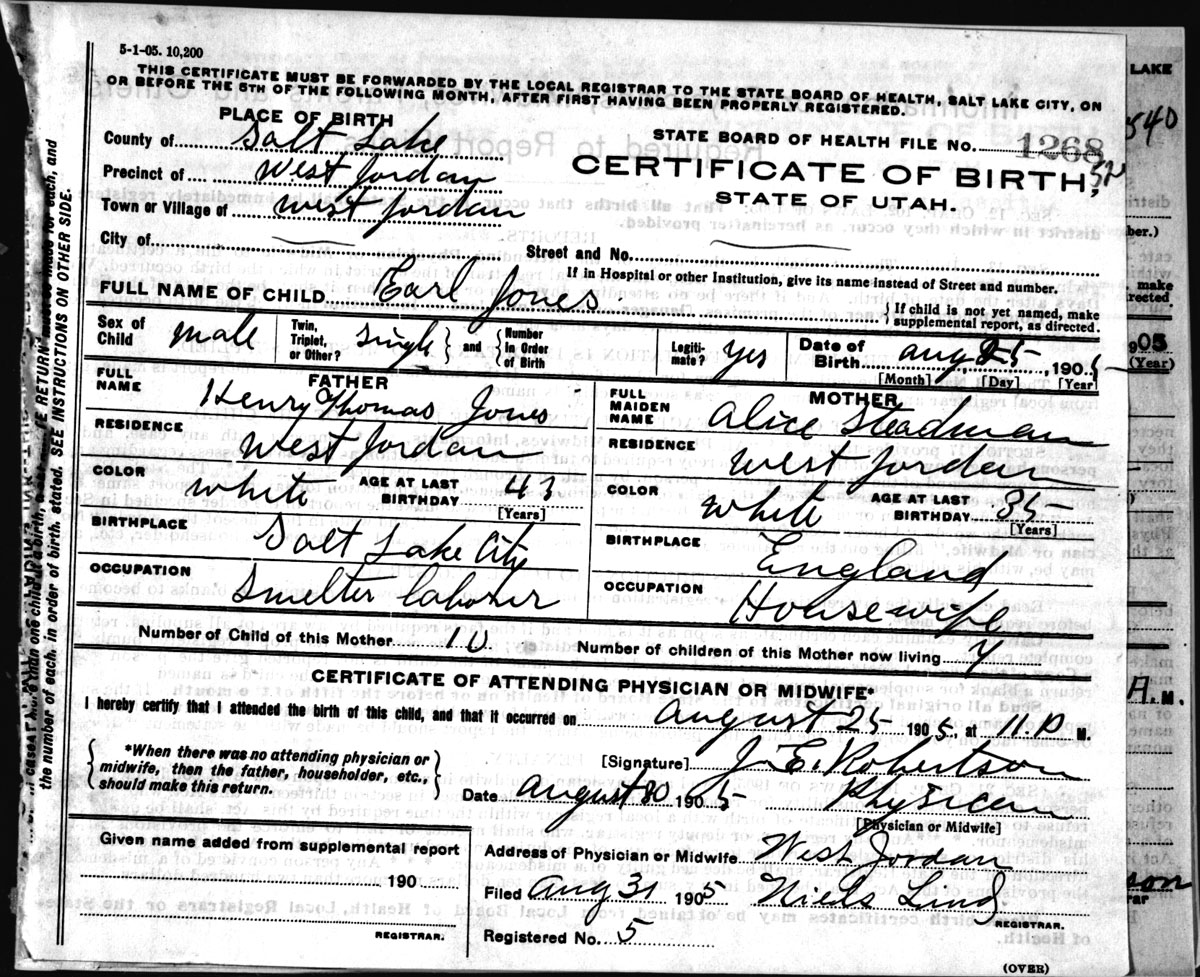 5-1-05. 10,200
THIS CERTIFICATE MUST BE FORWARDED BY THE LOCAL REGISTRAR TO THE STATE BOARD OF HEALTH, SALT LAKE CITY, ON
OR BEFORE THE 5TH OF THE FOLLOWING MONTH, AFTER FIRST HAVING BEEN PROPERLY REGISTERED.
PLACE OF BIRTH
County of Salt Lake
Precinct of West Jordan
Town or Village of West Jordan
City of
STATE BOARD OF HEALTH FILE No. 1268
CERTIFICATE OF BIRTH
STATE OF UTAH.
Street and No.
If in Hospital or other Institution, give its name instead of Street and number.
FULL NAME OF CHILD Earl Jones
If child is not yet named, make
supplemental report, as directed.
Sex of Child male
Twin, Triplet, or Other? Single and Number in Order of Birth
Legiti- mate? yes
Date of Birth Aug 25, 1905
[Month] [Day] [Year]
FATHER
FULL NAME Henry Thomas Jones
RESIDENCE West Jordan
COLOR White AGE AT LAST BIRTHDAY 43
[Years]
BIRTHPLACE Salt Lake City
OCCUPATION Smelter Laborer
MOTHER
FULL MAIDEN NAME Alice Steadman
RESIDENCE West Jordan
COLOR White AGE AT LAST BIRTHDAY 35
[Years]
BIRTHPLACE England
OCCUPATION Housewife
Number of Child of this Mother 10 Number of children of this Mother now living 7
CERTIFICATE OF ATTENDING PHYSICIAN OR MIDWIFE*
I hereby certify that I attended the birth of this child, and that it occurred on August 25 1905, at 11.P M.
*When there was no attending physician or
midwife, then the father, householder, etc.,
should make this return.
[Signature] J. E. Robertson
Date August 30 1905 Physican
[Physician or Midwife]
Given name added from supplemental report
190
REGISTRAR.
Address of Physician or Midwife West Jordan
Filed Aug 31 1905 Niels Lind
REGISTRAR.
Registered No. 5
(OVER)
the number of each, in order of birth, stated. SEE INSTRUCTIONS ON OTHER SIDE.
LAKE
540
ber.)
make
rected
05
(Year)
A. M.